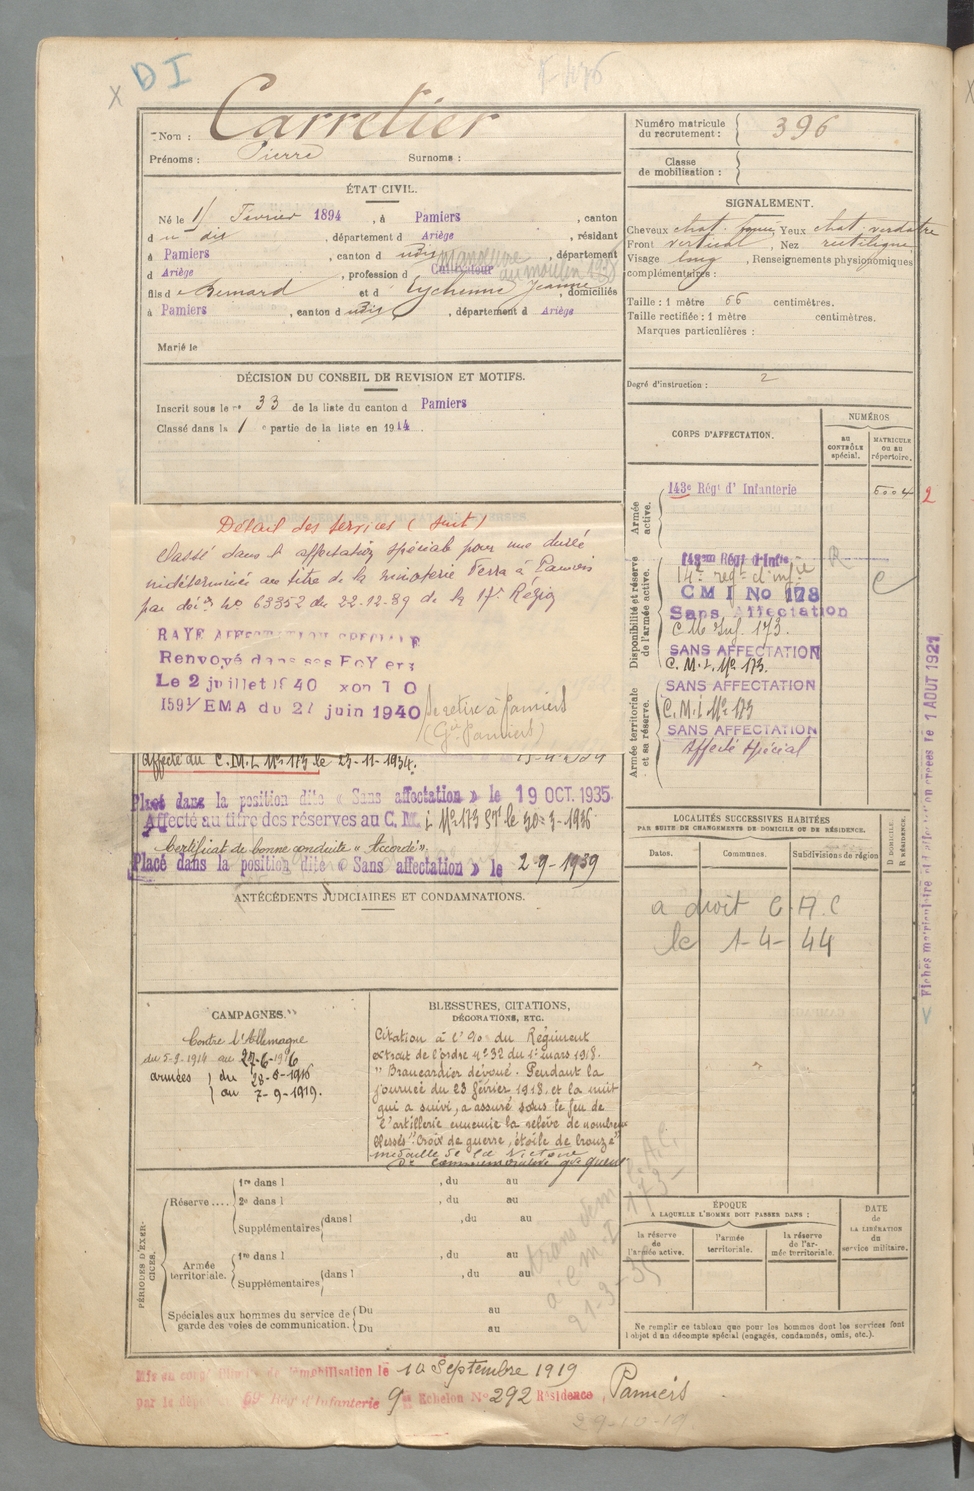 D I
Nom : Carretier
Prénoms : Pierre Surnoms :
Numéro matricule
du recrutement : 396
Classe
de mobilisation :
ÉTAT CIVIL.
Né le 1 Fevrier 1894, à Pamiers, canton
d u dis, département d Ariège, résidant
à Pamiers, canton d udis, département
d Ariège, profession d Cultivateur
fils d e Bernard et d Jeanne, domiciliés
à Pamiers, canton d udis, département d Ariège
Marié le
SIGNALEMENT.
Cheveux chat. foncé Yeux chat. verdatre
Front vertical, Nez rectiligne
Visage long, Renseignements physionomiques
complémentaires :
Taille : 1 mètre 66 centimètres.
Taille rectifiée : 1 mètre centimètres.
Marques particulières :
Degré d'instruction : 2
DÉCISION DU CONSEIL DE REVISION ET MOTIFS.
Inscrit sous le n° 33 de la liste du canton d Pamiers
Classé dans la 1 e partie de la liste en 1914.
CORPS D'AFFECTATION.
NUMÉROS
au
CONTRÔLE
spécial.
MATRICULE
ou au
répertoire.
Armée
active.
143e Régt d' Infanterie 5004 2
Disponibilité et réserve
de l'armée active.
143eme Régt d'Infie R
14e regt d'infie C
C M I No 178
Sans Affectation
C M Inf. 173.
SANS AFFECTATION
C. M. I. No 173.
Armée territoriale
et sa réserve.
SANS AFFECTATION
C. M. I No 173
SANS AFFECTATION
Affecté Spécial
Détail des services (suite)
Classé dans l'affectation spéciale pour une durée
indéterminée au titre de la minoterie Terra à Pamiers
par déc. No 63352 du 22-12-39 de la 17e Région
RAYE AFFECTATION SPECIALE
Renvoyé dans ses FoYers
Le 2 juillet 1940
EMA du 21 juin 1940
Se retire à Pamiers
Affecté au C.M.I. No 173 le 23-11-1934.
Placé dans la position dite « Sans affectation » le 19 OCT. 1935
Affecté au titre des réserves au C. M. I No 173 le 30-3-1936
Certificat de bonne conduite « Accordé ».
Placé dans la position dite « Sans affectation » le 2-9-1939
ANTÉCÉDENTS JUDICIAIRES ET CONDAMNATIONS.
LOCALITÉS SUCCESSIVES HABITÉES
PAR SUITE DE CHANGEMENTS DE DOMICILE OU DE RÉSIDENCE.
Dates. Communes. Subdivisions de région
D. DOMICILE.
R. RÉSIDENCE.
a droit C.A.C
le 1-4-44
Fiches matriculaire et d'affectation créées le 1 AOUT 1921
CAMPAGNES.
Contre l'Allemagne
du 5-9-1914 au 27-6-1916
armées du 28-6-1916
au 7-9-1919.
BLESSURES, CITATIONS,
DÉCORATIONS, ETC.
Citation à l'O. du Régiment
extrait de l'ordre No 32 du 1er mars 1918.
" Brancardier dévoué. Pendant la
journée du 23 février 1918, et la nuit
qui a suivi, a assuré sous le feu de
l'artillerie ennemie la relève de nombreux
blessés". Croix de guerre, étoile de bronze
médaille de la victoire
de commémorative gde guerre
PÉRIODES D'EXERCICES.
Réserve....
1re dans l , du au
2e dans l , du au
Supplémentaires dans l , du au
Armée
territoriale.
1re dans l , du au
Supplémentaires dans l , du au
Spéciales aux hommes du service de
garde des voies de communication.
Du au
Du au
ÉPOQUE
A LAQUELLE L'HOMME DOIT PASSER DANS :
la réserve
de
l'armée active.
l'armée
territoriale.
la réserve
de l'armée territoriale.
DATE
de
LA LIBÉRATION
du
service militaire.
Ne remplir ce tableau que pour les hommes dont les services font
l'objet d'un décompte spécial (engagés, condamnés, omis, etc.).
Mis en congé illimité de démobilisation le 10 Septembre 1919
par le dépôt 59e Rég. d'Infanterie 9e Echelon No 292 Résidence, Pamiers
29-10-19.